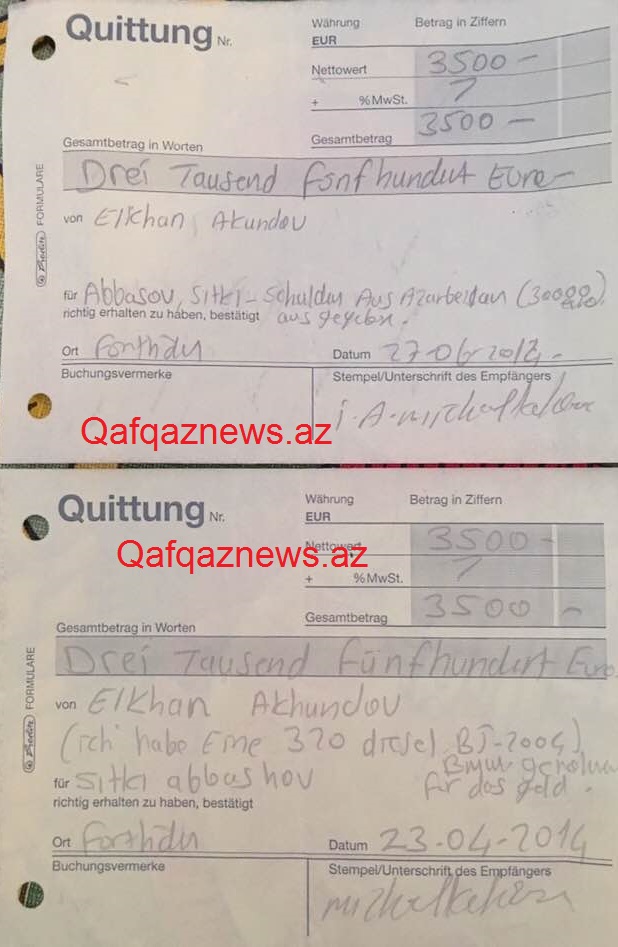 Quittung Nr.
Währung
EUR
Betrag in Ziffern
Nettowert 3500 -
+ % MwSt.
Gesamtbetrag 3500 -
Gesamtbetrag in Worten
Drei Tausend fönfhundert Euro -
von Elkhan, Akundov
für Abbasov, Sitki - Schulden Aus Azarbeidan
richtig erhalten zu haben, bestätigt aus gegeben.
Ort Datum
Buchungsvermerke
Stempel/Unterschrift des Empfängers
i.A.
Herlitz FORMULARE
Qafqaznews.az
Quittung Nr.
Währung
EUR
Betrag in Ziffern
Nettowert 3500 -
Qafqaznews.az
+ % MwSt.
Gesamtbetrag 3500 -
Gesamtbetrag in Worten
Drei Tausend fünfhundert Euro
von Elkhan Akhundov
(ich habe Eine 320 diesel BJ-2004)
BMW
für Sitki abbashov für das geld.
richtig erhalten zu haben, bestätigt
Ort Datum 23-04-2014
Buchungsvermerke
Stempel/Unterschrift des Empfängers
Herlitz FORMULARE